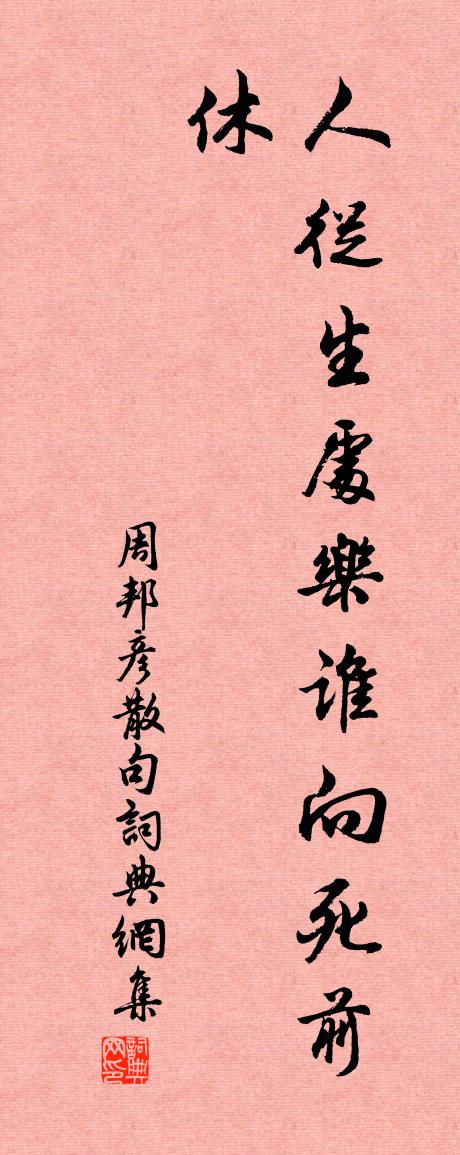 人從生處樂誰向死前
休
周邦彥散句詞典網集
詞典
网印